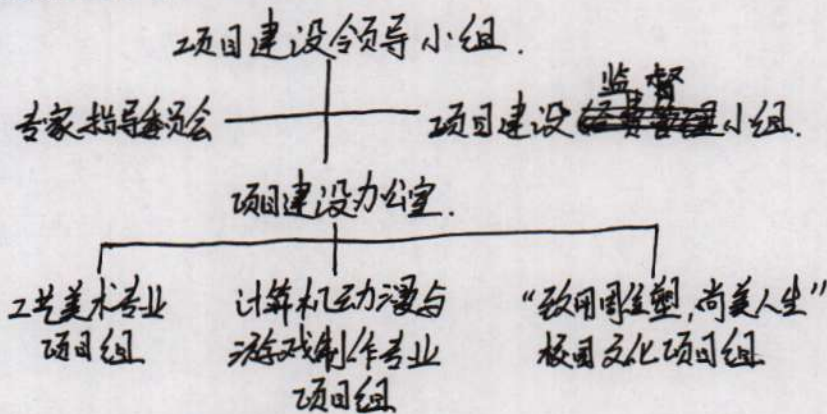 项目建设领导小组.
专家指导委员会
项目建设监督小组.
项目建设办公室.
工艺美术专业
项目组
计算机动漫与
游戏制作专业
项目组
“致用雕塑,尚美人生”
校园文化项目组